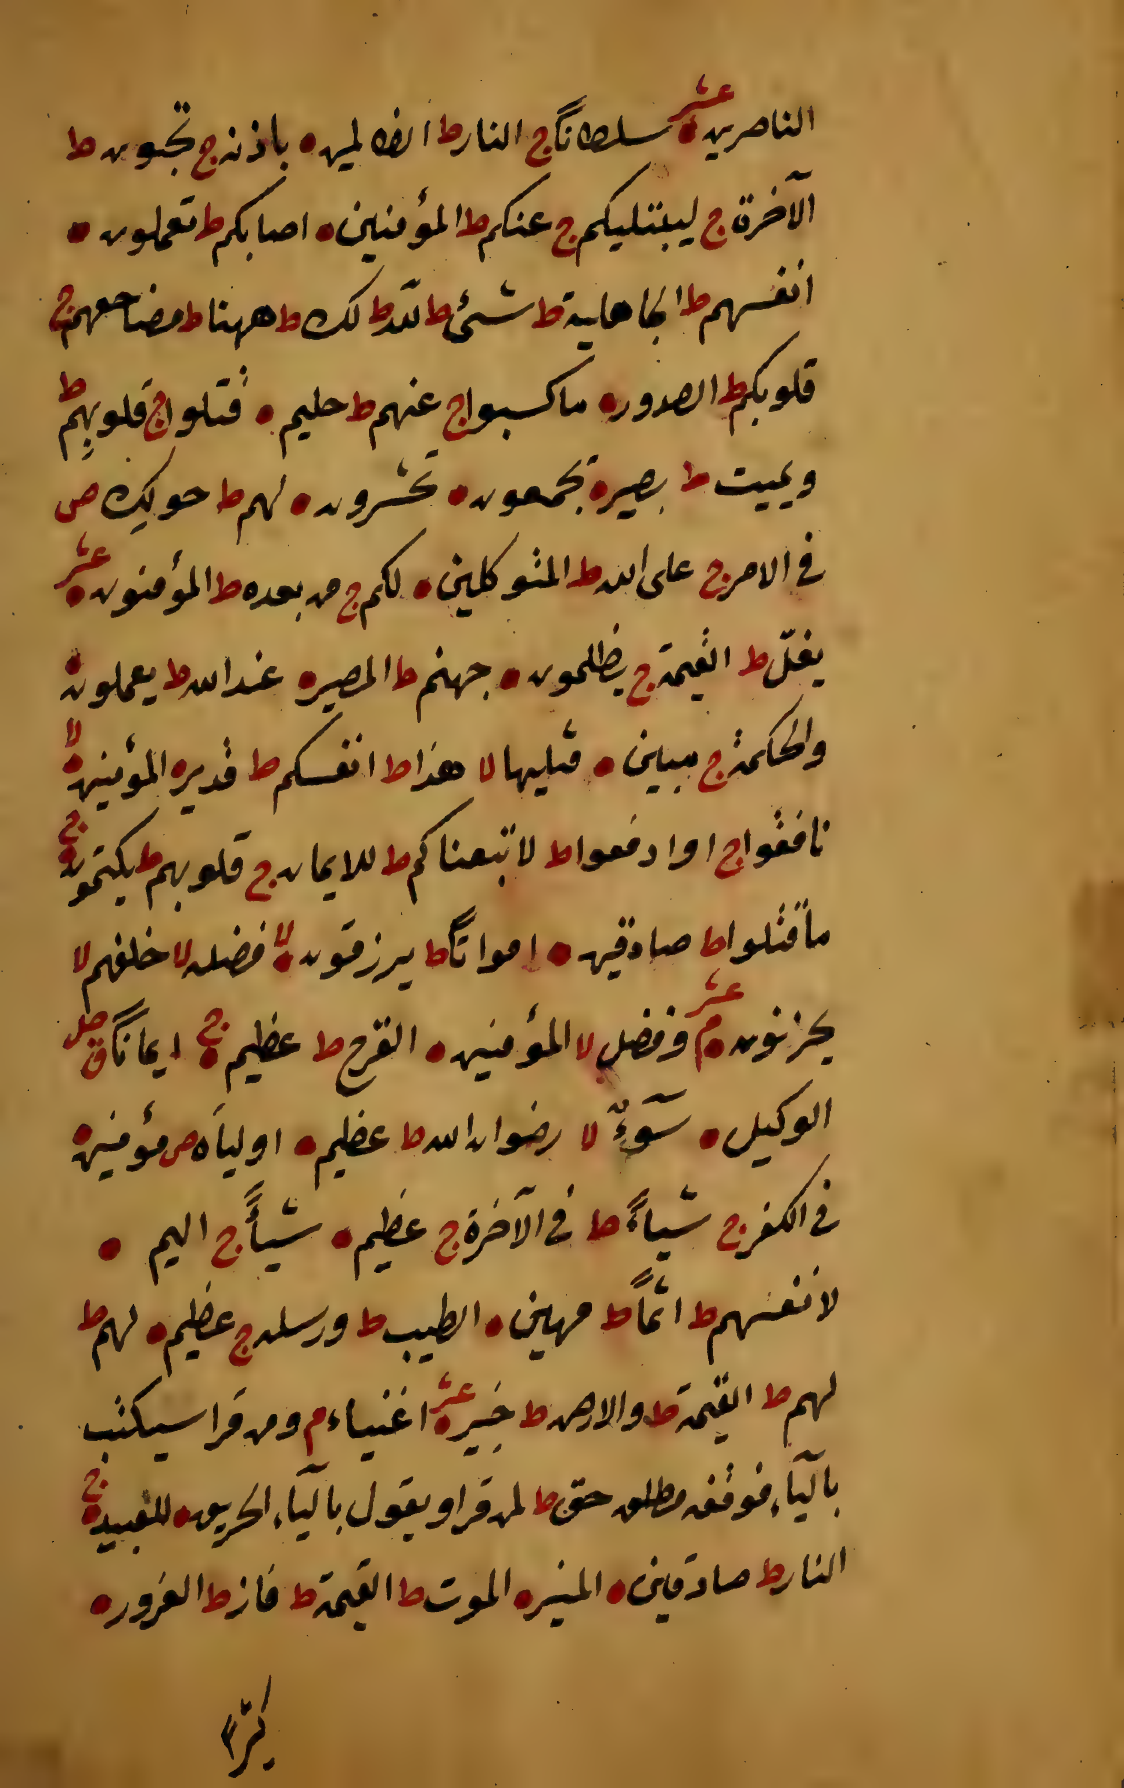 الناصرين ه عشر سلطانًا ج النار ط الظالمين ه باذنه ج تحبون ط
الآخرة ج ليبتليكم ج عنكم ط المؤمنين ه اصابكم ط تعملون ه
انفسهم ط الجاهلية ط شئ ط لله ط لك ط ههنا ط مضاجعهم ج
قلوبكم ط الصدور ه ما كسبوا ج عنهم ط حليم ه قتلوا ج قلوبهم ط
ويميت ط بصير ه يجمعون ه تحشرون ه لهم ط حولك ص
فى الامر ج على الله ط المتوكلين ه لكم ج من بعده ط المؤمنون ه عشر
يغلّ ط القيمة ج يظلمون ه جهنم ط المصير ه عند الله ط يعملون ه
والحكمة ج مبين ه مثليها لا هذا ط انفسكم ط قدير ه المؤمنين ه لا
نافقوا ج او ادفعوا ط لاتبعناكم ط للايمان ج قلوبهم ط يكتمون ه ج
ما قتلوا ط صادقين ه امواتًا ط يرزقون ه لا فضله لا خلفهم لا
يحزنون ه م عشر وفضل لا المؤمنين ه القرح ط عظيم ه ج ايمانًا ق صل
الوكيل ه سوءٌ لا رضوان الله ط عظيم ه اولياءه ص مؤمنين ه
فى الكفر ج شيأً ط فى الآخرة ج عظيم ه شيأً ج اليم ه
لانفسهم ط اثمًا ط مهين ه الطيب ط ورسله ج عظيم ه لهم ط
لهم ط القيمة ط والارض ط خبير ه عشر اغنياء م ومن قرا سيكتب
بالياء فوقفه مطلق حق ط لمن قرا ويقول بالياء الحريق ه للعبيد ه ج
النار ط صادقين ه المنير ه الموت ط القيمة ط فاز ط الغرور ه